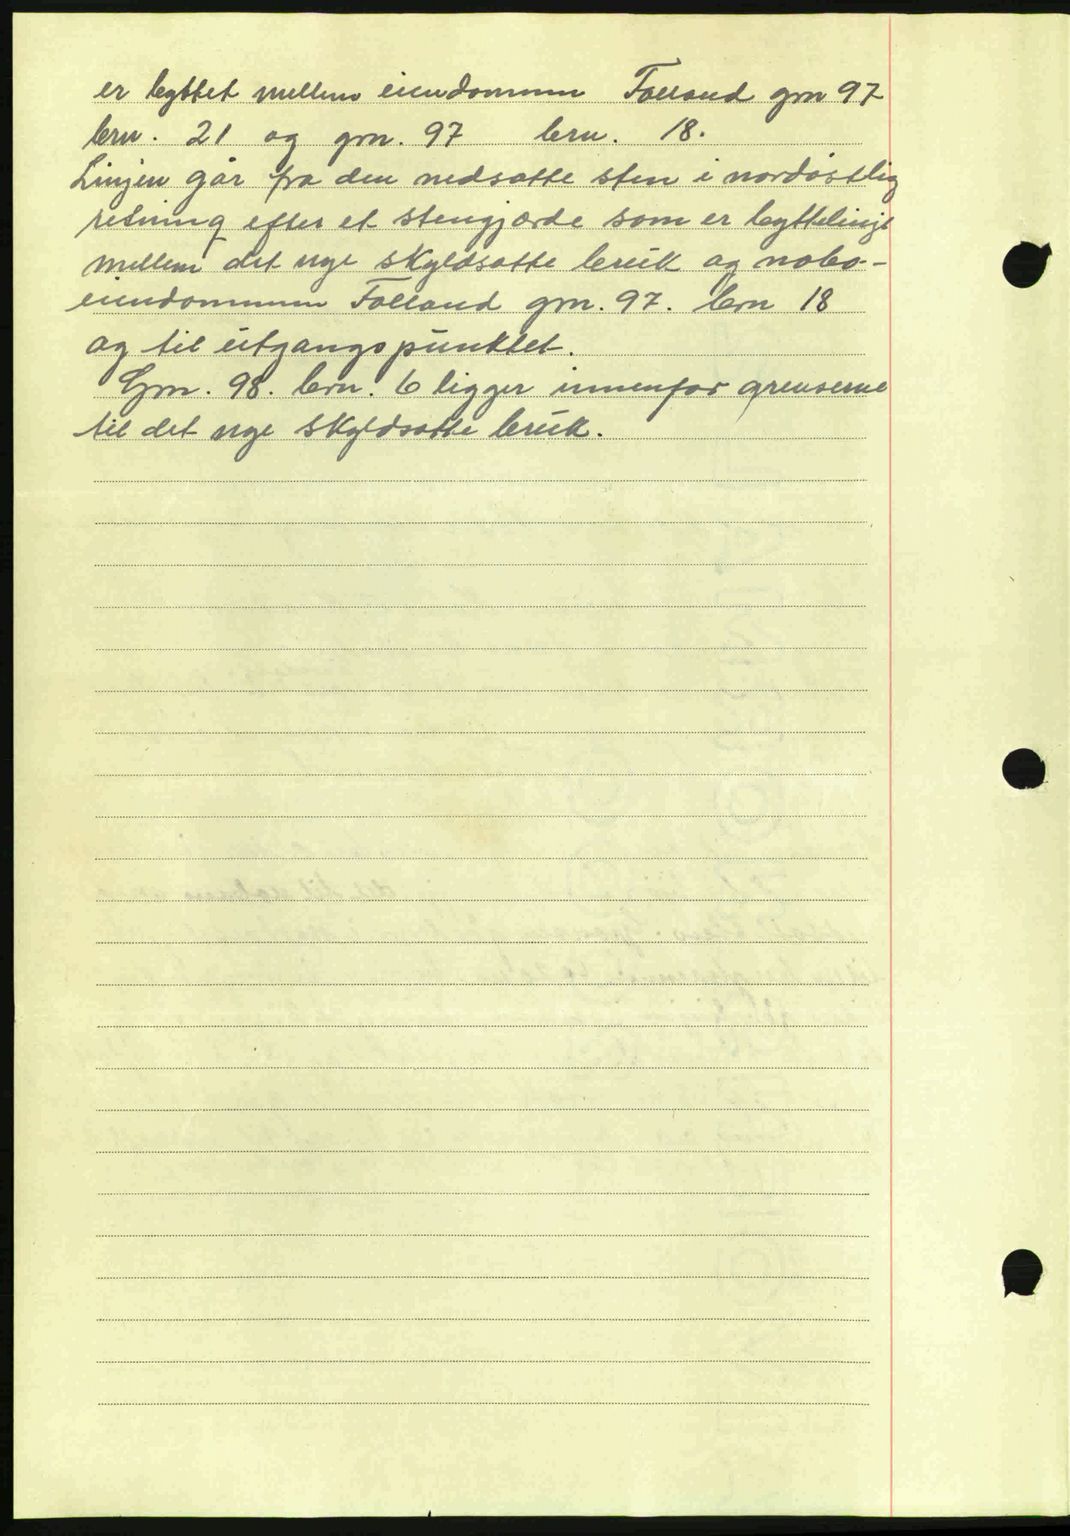 er byttet mellem eiendommen Folland grn 97
brn. 21 og grn. 97 brn. 18.
Linjen går fra den nedsatte sten i nordøstlig
retning efter et stengjærde som er byttelinje
mellem det nye skyldsatte bruk og nabo-
eiendommen Folland grn. 97. brn 18
og til utgangspunktet.
Grn. 98. brn. 6 ligger innenfor grenserne
til det nye skyldsatte bruk.